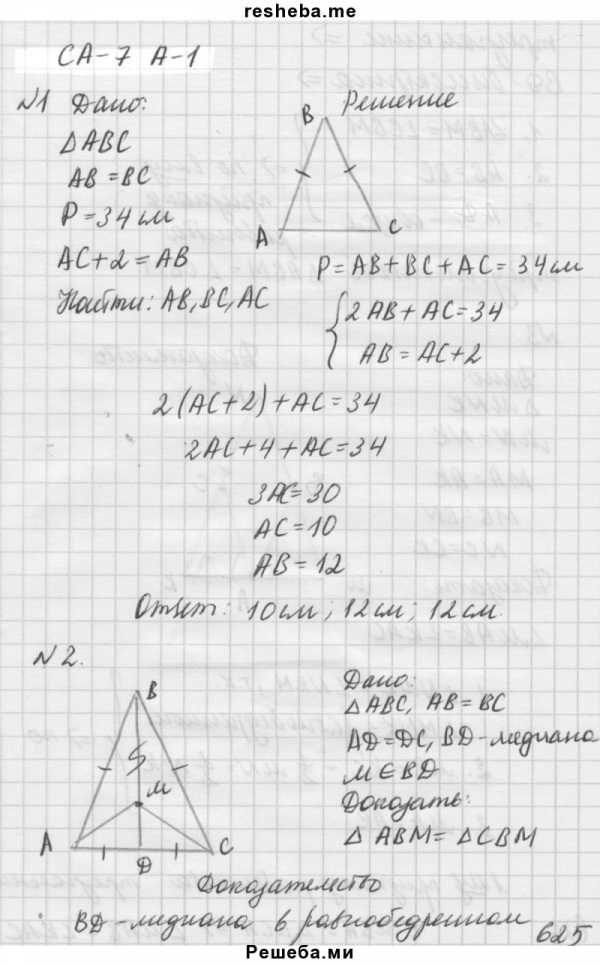 resheba.me
СА-7 А-1
№1 Дано:
Решение
△ABC
AB = BC
P = 34 см
AC+2 = AB
Найти: AB, BC, AC
B
A
C
P = AB + BC + AC = 34 см
2AB + AC = 34
AB = AC+2
2(AC+2) + AC = 34
2AC + 4 + AC = 34
3AC = 30
AC = 10
AB = 12
Ответ: 10 см; 12 см; 12 см.
№2.
B
M
A
D
C
Дано:
△ABC, AB = BC
AD = DC, BD - медиана
M ∈ BD
Доказать:
△ABM = △CBM
Доказательство
BD - медиана в равнобедренном
625
Решеба.ми